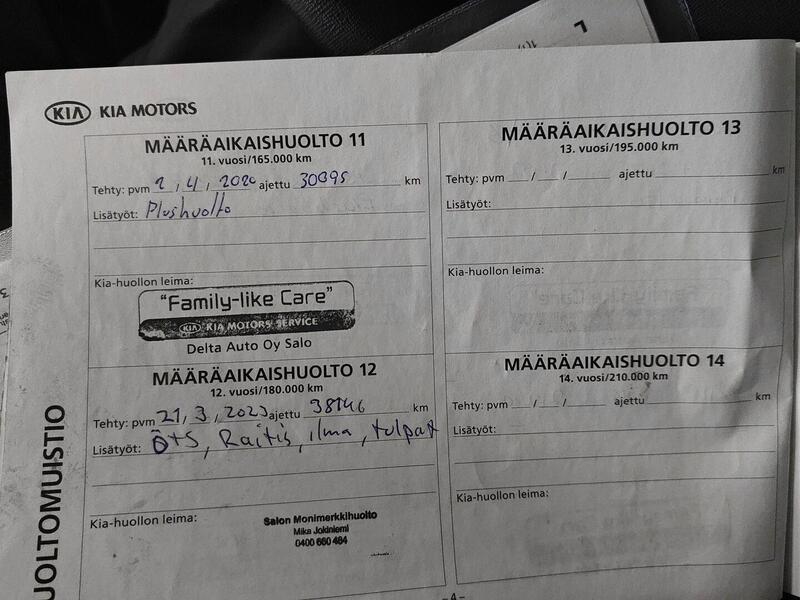 KIA KIA MOTORS
MÄÄRÄAIKAISHUOLTO 11
11. vuosi/165.000 km
Tehty: pvm 2 / 4 / 2020 ajettu 30095 km
Lisätyöt: Plushuolto
Kia-huollon leima:
"Family-like Care"
KIA KIA MOTORS SERVICE
Delta Auto Oy Salo
MÄÄRÄAIKAISHUOLTO 12
12. vuosi/180.000 km
Tehty: pvm 21, 3, 2023 ajettu 38146 km
Lisätyöt: Ö+S, Raitis, ilma, tulpat
Kia-huollon leima:
Salon Monimerkkihuolto
Mika Jokiniemi
0400 660 464
MÄÄRÄAIKAISHUOLTO 13
13. vuosi/195.000 km
Tehty: pvm / / ajettu km
Lisätyöt:
Kia-huollon leima:
MÄÄRÄAIKAISHUOLTO 14
14. vuosi/210.000 km
Tehty: pvm / / ajettu km
Lisätyöt:
Kia-huollon leima:
UOLTOMUISTIO
-4-